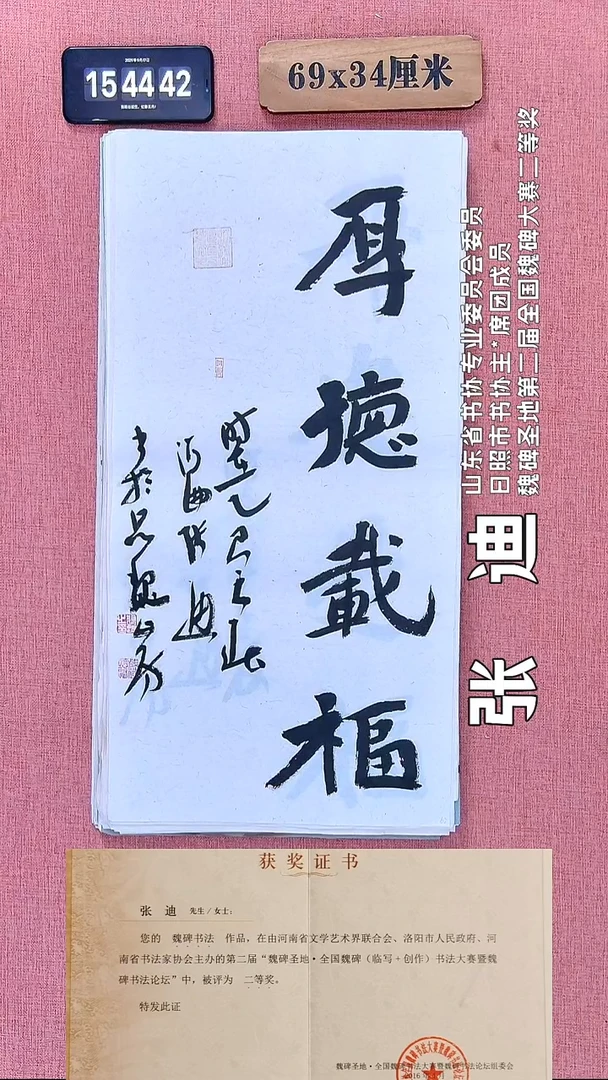 15 44 42
69x34厘米
厚德载福
张迪
书于品魏山房
山东省书协专业委员会委员
日照市书协主*席团成员
魏碑圣地第二届全国魏碑大赛二等奖
张 迪
获奖证书
张 迪 先生/女士:
您的 魏碑书法 作品，在由河南省文学艺术界联合会、洛阳市人民政府、河
南省书法家协会主办的第二届“魏碑圣地·全国魏碑（临写+创作）书法大赛暨魏
碑书法论坛”中，被评为 二等奖。
特发此证
魏碑圣地·全国魏碑书法大赛暨魏碑书法论坛组委会